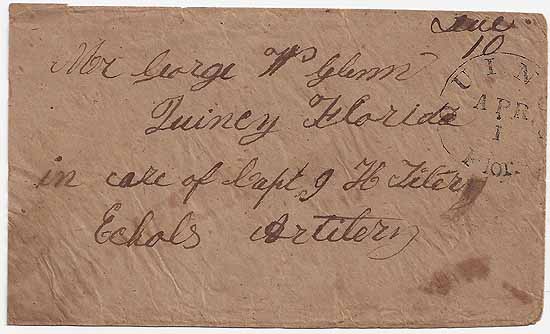 Due
10
Mr George W Glenn
Quincy Florida
in care of Capt J H Tiler
Echols Artilery
UIN
APR
1